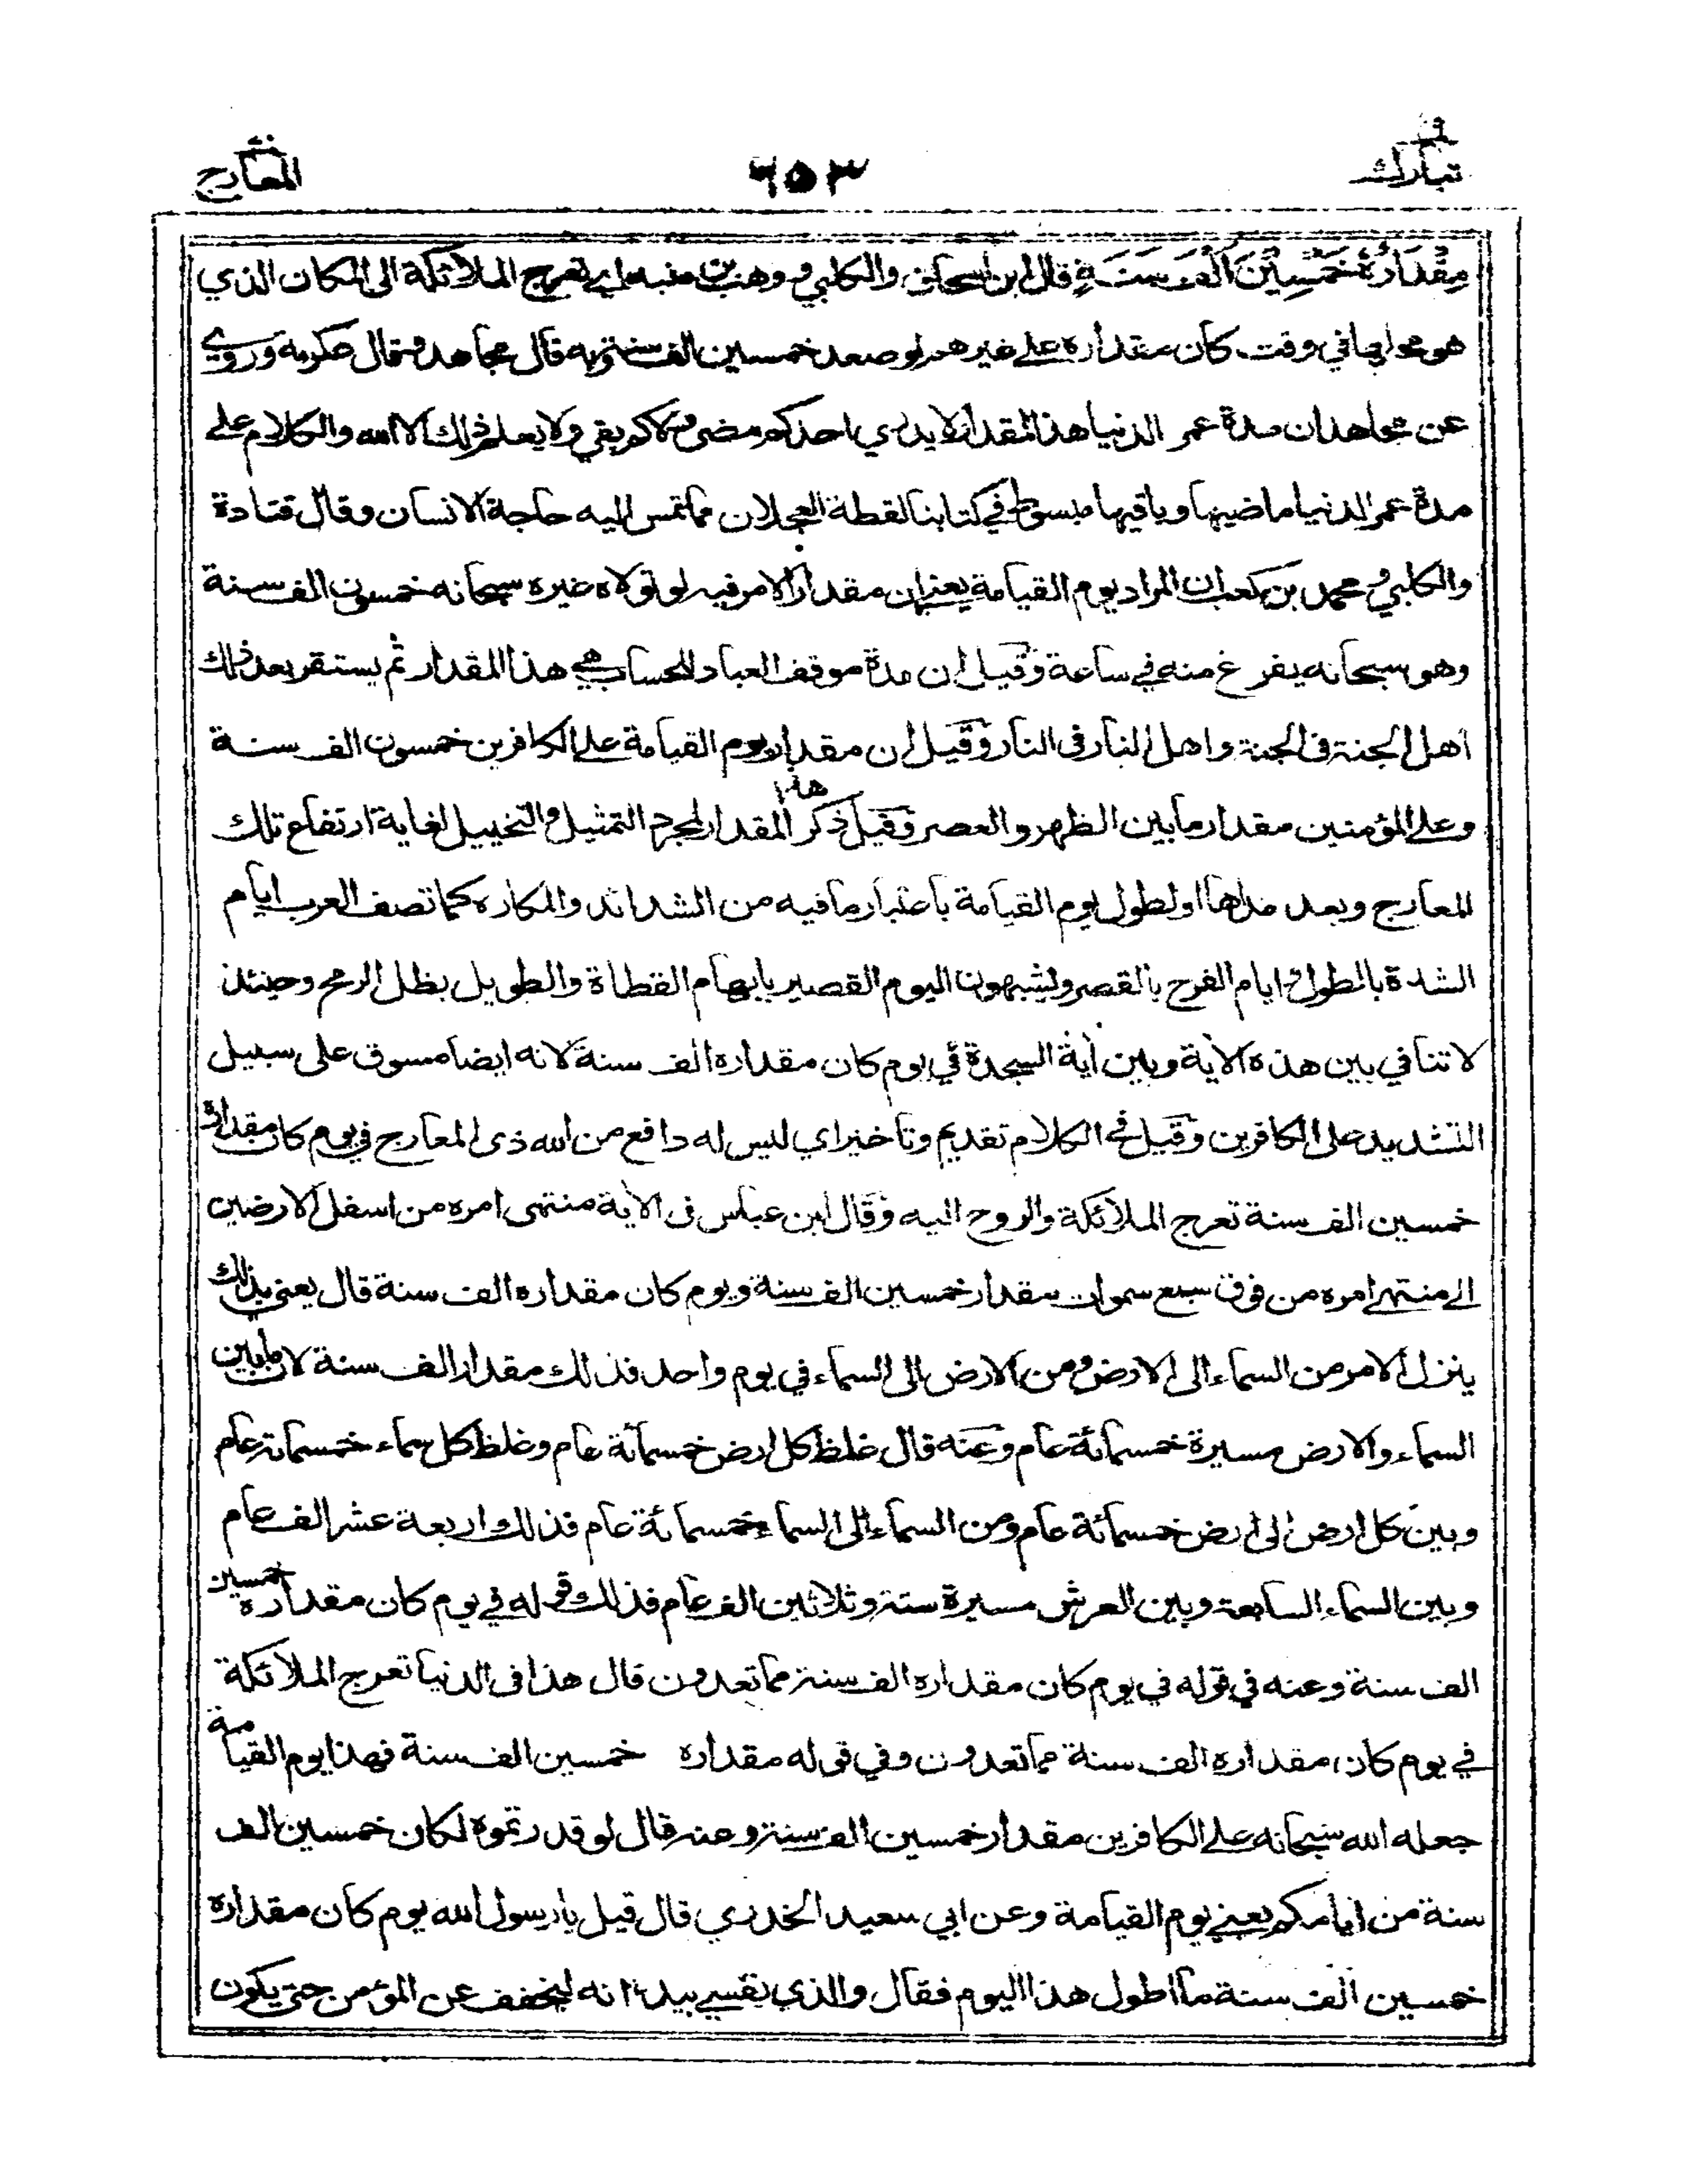 تبارك ٢٩
٦٥٣
المعارج
مِقْدَارُهُ خَمْسِيْنَ اَلْفَ سَنَةٍ قال ابن اسحاق والكلبي ووهب بن منبه اي تعرج الملائكة الى المكان الذي
هو محلها في وقت كان مقداره على غيرهم لو صعد خمسين الف سنة وبه قال مجاهد وقال عكرمة وروي
عن مجاهد ان مدة عمر الدنيا هذا المقدار لا يدري احد كم مضى وكم بقي ولا يعلم ذلك الا الله والكلام على
مدة عمر الدنيا ماضيها وباقيها مبسوط في كتابنا لقطة العجلان مما تمس اليه حاجة الانسان وقال قتادة
والكلبي ومحمد بن كعب ان المراد يوم القيامة يعني ان مقدار الامر فيه لو تولاه غيره سبحانه خمسون الف سنة
وهو سبحانه يفرغ منه في ساعة وقيل ان مدة موقف العباد للحساب هي هذا المقدار ثم يستقر بعد ذلك
اهل الجنة في الجنة واهل النار في النار وقيل ان مقدار يوم القيامة على الكافرين خمسون الف سنة
وعلى المؤمنين مقدار ما بين الظهر والعصر وقيل ذكر هذا المقدار لمجرد التمثيل والتخييل لغاية ارتفاع تلك
المعارج وبعد مداها او لطول يوم القيامة باعتبار ما فيه من الشدائد والمكاره كما تصف العرب ايام
الشدة بالطول وايام الفرح بالقصر ويشبهون اليوم القصير بابهام القطاة والطويل بظل الرمح وحينئذ
لا تنافي بين هذه الاية وبين أية السجدة في يوم كان مقداره الف سنة لانه ايضا مسوق على سبيل
التشديد على الكافرين وقيل في الكلام تقديم وتاخير اي ليس له دافع من الله ذى المعارج في يوم كان مقداره
خمسين الف سنة تعرج الملائكة والروح اليه وقال ابن عباس فى الاية منتهى امره من اسفل الارضين
الى منتهى امره من فوق سبع سموات مقدار خمسين الف سنة ويوم كان مقداره الف سنة قال يعني بذلك
ينزل الامر من السماء الى الارض ومن الارض الى السماء في يوم واحد فذلك مقدار الف سنة لان ما بين
السماء والارض مسيرة خمسمائة عام وعنه قال غلظ كل ارض خمسمائة عام وغلظ كل سماء خمسمائة عام
وبين كل ارض الى ارض خمسمائة عام ومن السماء الى السماء خمسمائة عام فذلك اربعة عشر الف عام
وبين السماء السابعة وبين العرش مسيرة ستة وثلاثين الف عام فذلك قوله في يوم كان مقداره خمسين
الف سنة وعنه في قوله في يوم كان مقداره الف سنة مما تعدون قال هذا فى الدنيا تعرج الملائكة
في يوم كان مقداره الف سنة مما تعدون وفي قوله مقداره خمسين الف سنة فهذا يوم القيامة
جعله الله سبحانه على الكافرين مقدار خمسين الف سنة وعنه قال لو قدرتموه لكان خمسين الف
سنة من ايامكم يعني يوم القيامة وعن ابي سعيد الخدري قال قيل يا رسول الله يوم كان مقداره
خمسين الف سنة ما اطول هذا اليوم فقال والذي نفسي بيده انه ليخفف عن المؤمن حتى يكون